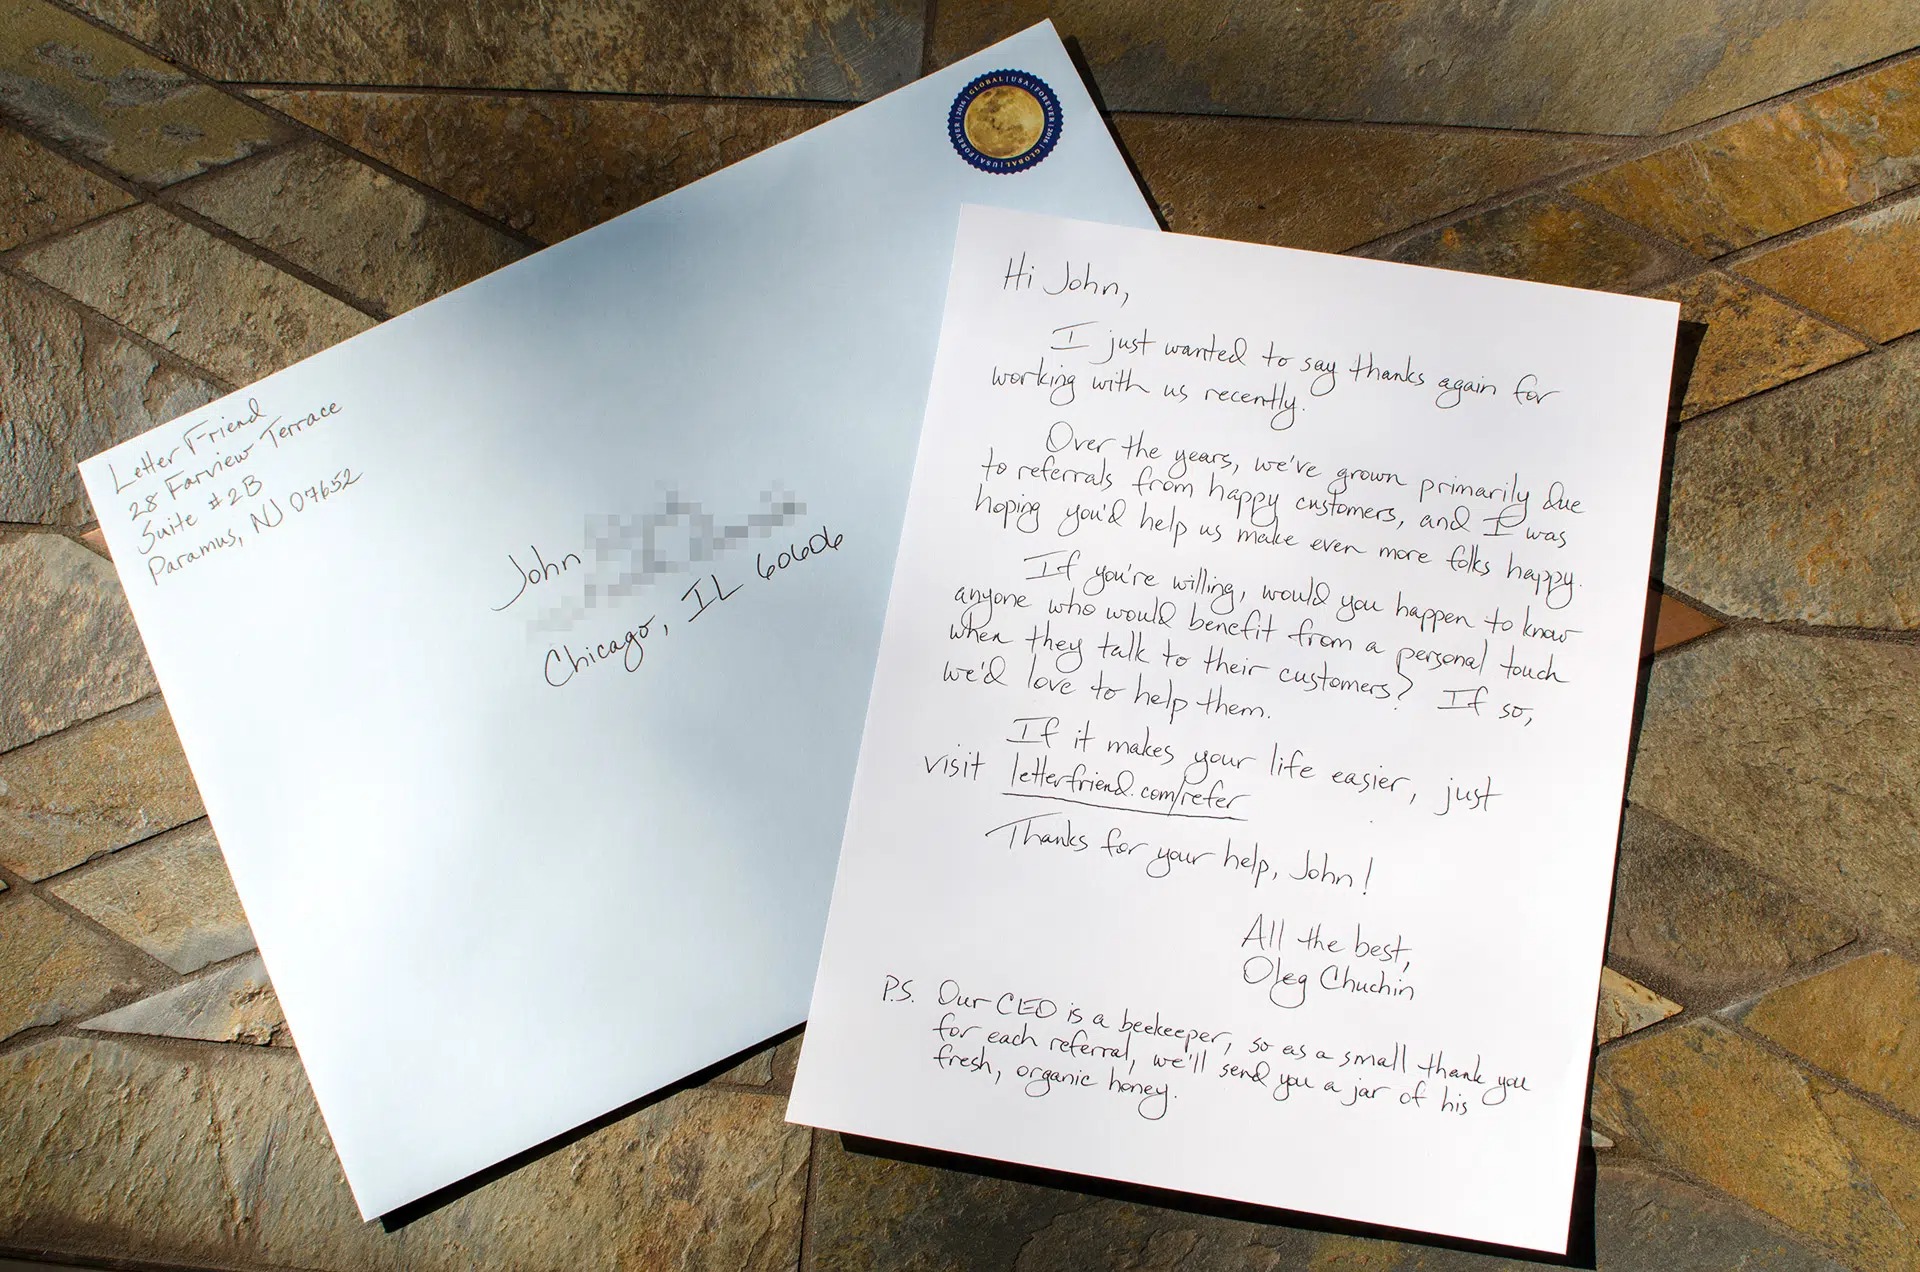 GLOBAL | USA | FOREVER | 2016 | GLOBAL | USA | FOREVER | 2016 |
Letter Friend
28 Farview Terrace
Suite #2B
Paramus, NJ 07652
John
Chicago, IL 60606
Hi John,
I just wanted to say thanks again for
working with us recently.
Over the years, we've grown primarily due
to referrals from happy customers, and I was
hoping you'd help us make even more folks happy.
If you're willing, would you happen to know
anyone who would benefit from a personal touch
when they talk to their customers? If so,
we'd love to help them.
If it makes your life easier, just
visit letterfriend.com/refer
Thanks for your help, John!
All the best,
Oleg Chuchin
P.S. Our CEO is a beekeeper, so as a small thank you
for each referral, we'll send you a jar of his
fresh, organic honey.